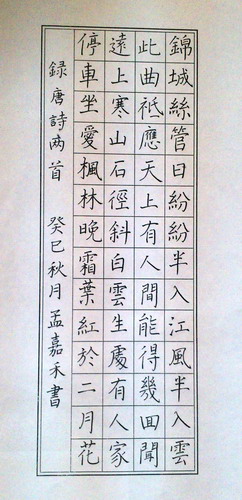 錦城絲管日紛紛半入江風半入雲
此曲祗應天上有人間能得幾回聞
遠上寒山石徑斜白雲生處有人家
停車坐愛楓林晚霜葉紅於二月花
録唐詩两首 癸巳秋月孟嘉禾書